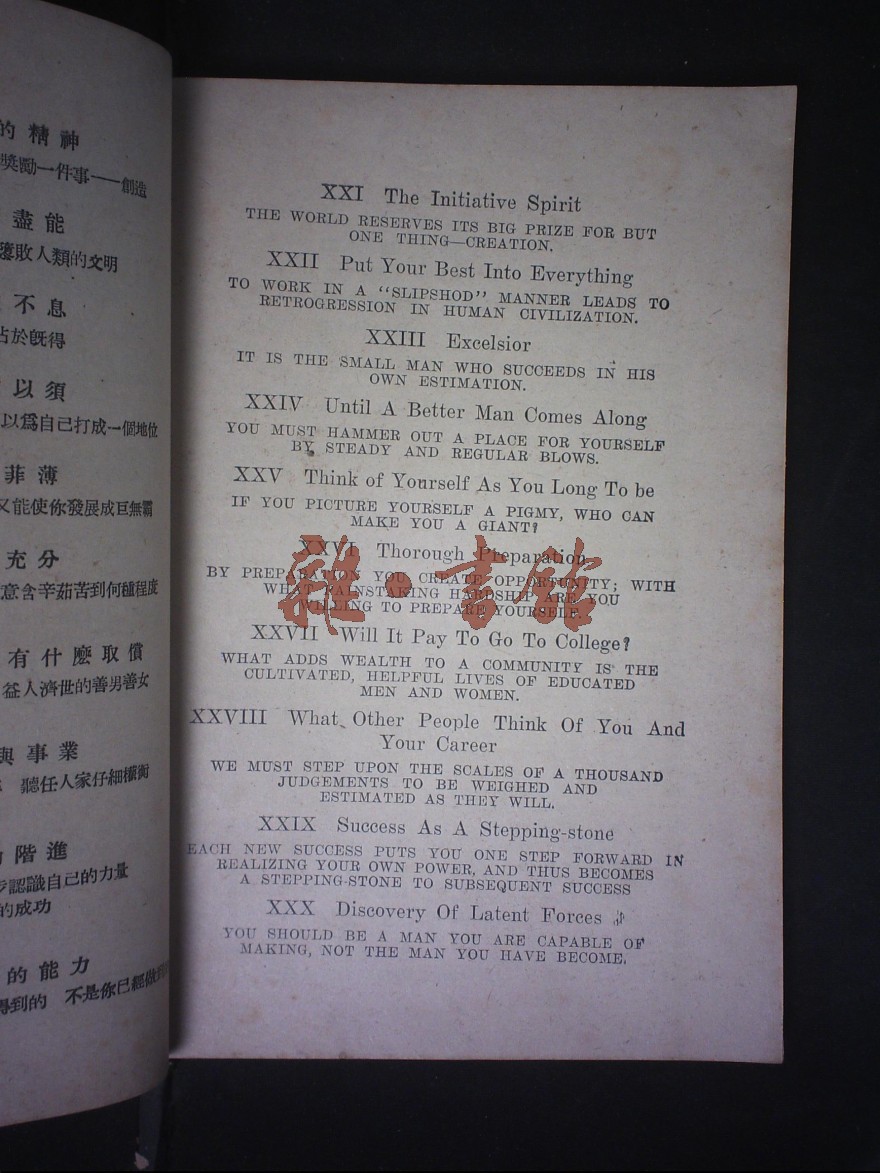 的精神
獎勵一件事——創造
盡能
人類的文明
不息
於既得
以須
以爲自己打成一個地位
菲薄
又能使你發展成巨無霸
充分
意含辛茹苦到何種程度
有什麼取償
益人濟世的善男善女
與事業
聽任人家仔細權衡
階進
認識自己的力量
的成功
的能力
得到的 不是你已經做到
XXI The Initiative Spirit
THE WORLD RESERVES ITS BIG PRIZE FOR BUT
ONE THING—CREATION.
XXII Put Your Best Into Everything
TO WORK IN A “SLIPSHOD” MANNER LEADS TO
RETROGRESSION IN HUMAN CIVILIZATION.
XXIII Excelsior
IT IS THE SMALL MAN WHO SUCCEEDS IN HIS
OWN ESTIMATION.
XXIV Until A Better Man Comes Along
YOU MUST HAMMER OUT A PLACE FOR YOURSELF
BY STEADY AND REGULAR BLOWS.
XXV Think of Yourself As You Long To be
IF YOU PICTURE YOURSELF A PIGMY, WHO CAN
MAKE YOU A GIANT?
XXVI Thorough Preparation
BY PREPARATION YOU CREATE OPPORTUNITY; WITH
WHAT PAINSTAKING HARDSHIP ARE YOU
WILLING TO PREPARE YOURSELF.
雜·書館
XXVII Will It Pay To Go To College?
WHAT ADDS WEALTH TO A COMMUNITY IS THE
CULTIVATED, HELPFUL LIVES OF EDUCATED
MEN AND WOMEN.
XXVIII What Other People Think Of You And
Your Career
WE MUST STEP UPON THE SCALES OF A THOUSAND
JUDGEMENTS TO BE WEIGHED AND
ESTIMATED AS THEY WILL.
XXIX Success As A Stepping-stone
EACH NEW SUCCESS PUTS YOU ONE STEP FORWARD IN
REALIZING YOUR OWN POWER, AND THUS BECOMES
A STEPPING-STONE TO SUBSEQUENT SUCCESS
XXX Discovery Of Latent Forces
YOU SHOULD BE A MAN YOU ARE CAPABLE OF
MAKING, NOT THE MAN YOU HAVE BECOME.